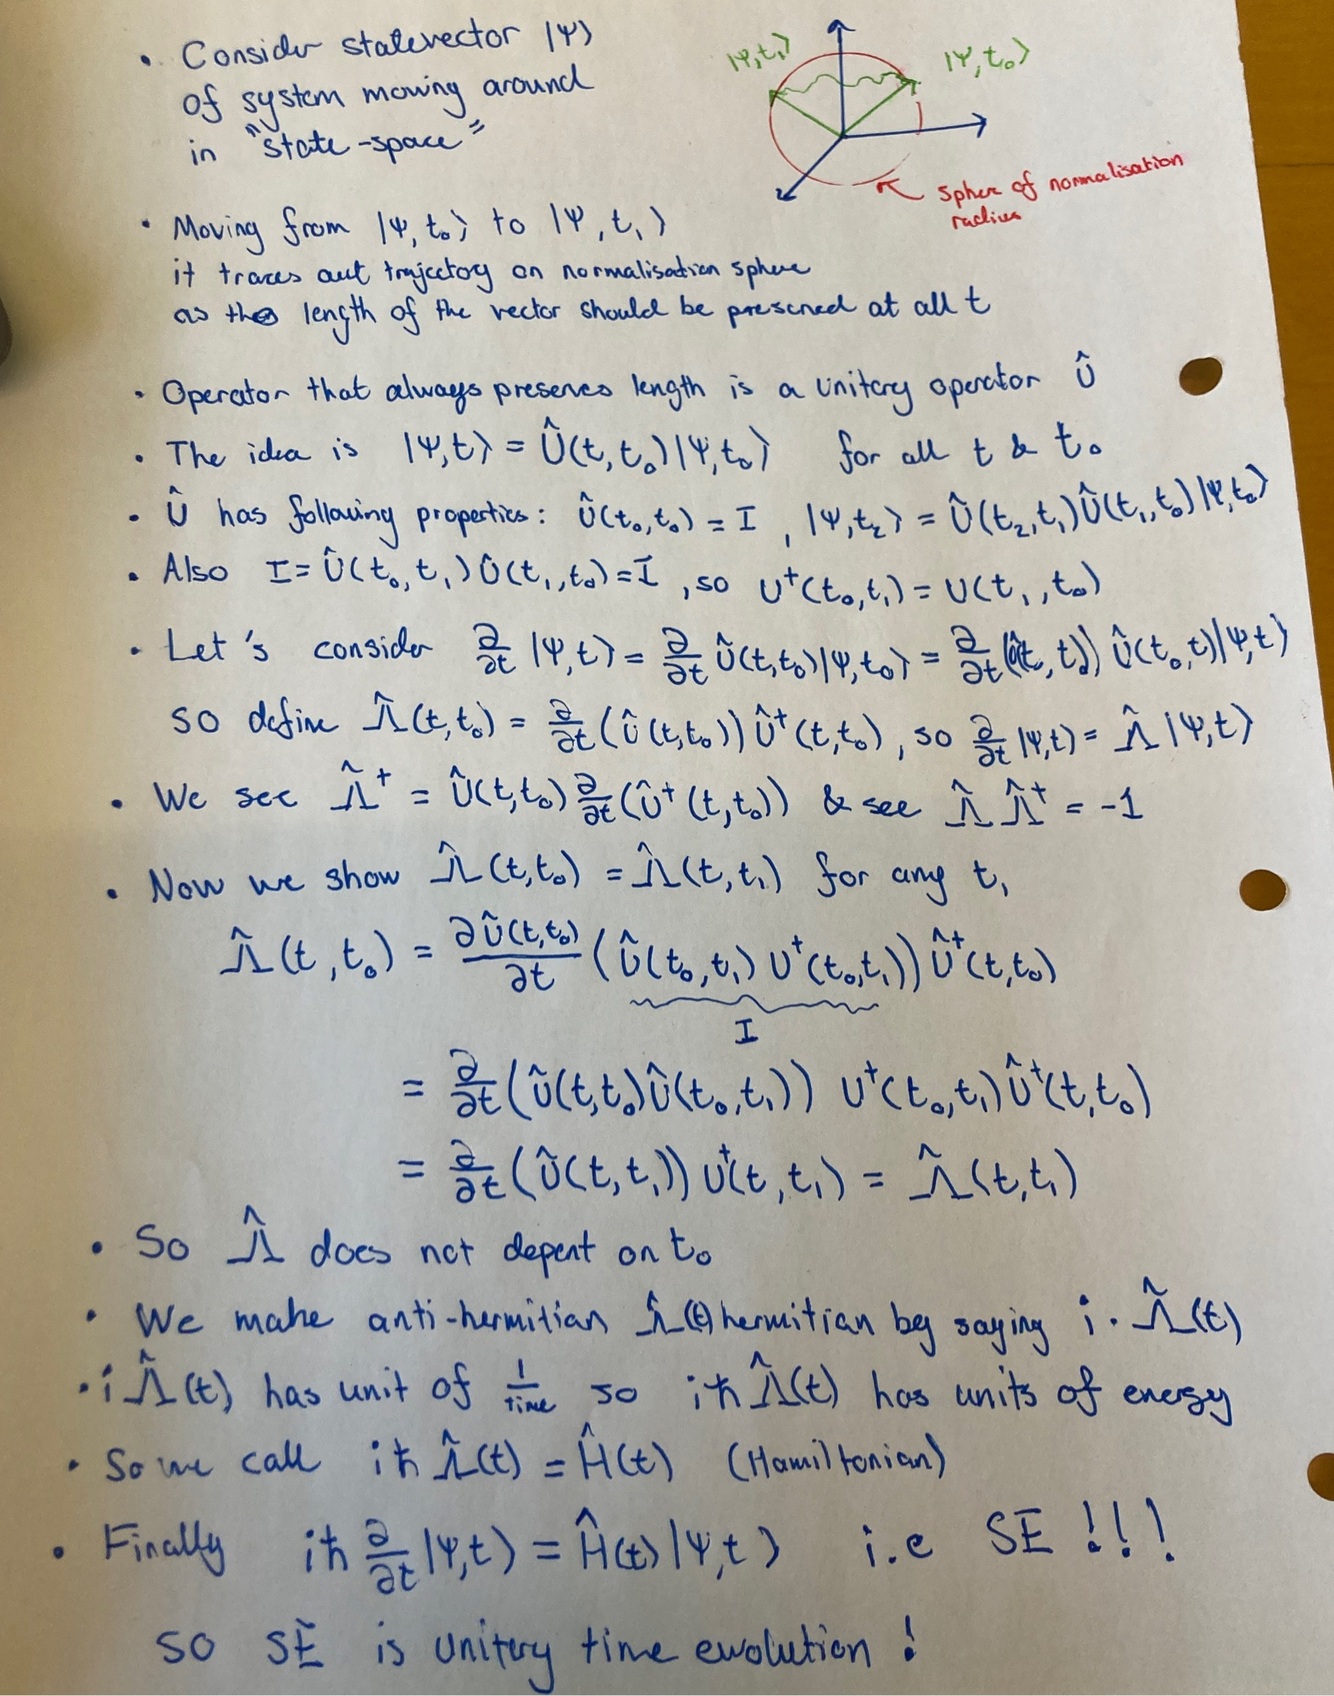 • Consider statevector |Ψ⟩
of system moving around
in "state-space"
|Ψ,t₁⟩
|Ψ,t₀⟩
sphere of normalisation
radius
• Moving from |Ψ,t₀⟩ to |Ψ,t₁⟩
it traces out trajectory on normalisation sphere
as the length of the vector should be preserved at all t
• Operator that always preserves length is a unitary operator Û
• The idea is |Ψ,t⟩ = Û(t,t₀)|Ψ,t₀⟩ for all t & t₀
• Û has following properties: Û(t₀,t₀) = I , |Ψ,t₂⟩ = Û(t₂,t₁)Û(t₁,t₀)|Ψ,t₀⟩
• Also I = Û(t₀,t₁)Û(t₁,t₀) = I , so U†(t₀,t₁) = U(t₁,t₀)
• Let's consider ∂/∂t |Ψ,t⟩ = ∂/∂t Û(t,t₀)|Ψ,t₀⟩ = ∂/∂t (Û(t,t₀)) Û(t₀,t)|Ψ,t⟩
so define Λ̂(t,t₀) = ∂/∂t (Û(t,t₀)) Û†(t,t₀) , so ∂/∂t |Ψ,t⟩ = Λ̂ |Ψ,t⟩
• We see Λ̂† = Û(t,t₀) ∂/∂t (Û†(t,t₀)) & see Λ̂ Λ̂† = -1
• Now we show Λ̂(t,t₀) = Λ̂(t,t₁) for any t₁
Λ̂(t,t₀) = ∂Û(t,t₀)/∂t (Û(t₀,t₁) U†(t₀,t₁)) Û†(t,t₀)
I
= ∂/∂t (Û(t,t₀)Û(t₀,t₁)) U†(t₀,t₁)Û†(t,t₀)
= ∂/∂t (Û(t,t₁)) U†(t,t₁) = Λ̂(t,t₁)
• So Λ̂ does not depent on t₀
• We make anti-hermitian Λ̂(t) hermitian by saying i · Λ̂(t)
• iΛ̂(t) has unit of 1/time so iħΛ̂(t) has units of energy
• So we call iħ Λ̂(t) = Ĥ(t) (Hamiltonian)
• Finally iħ ∂/∂t |Ψ,t⟩ = Ĥ(t)|Ψ,t⟩ i.e SE !!!
so SE is unitery time evolution !